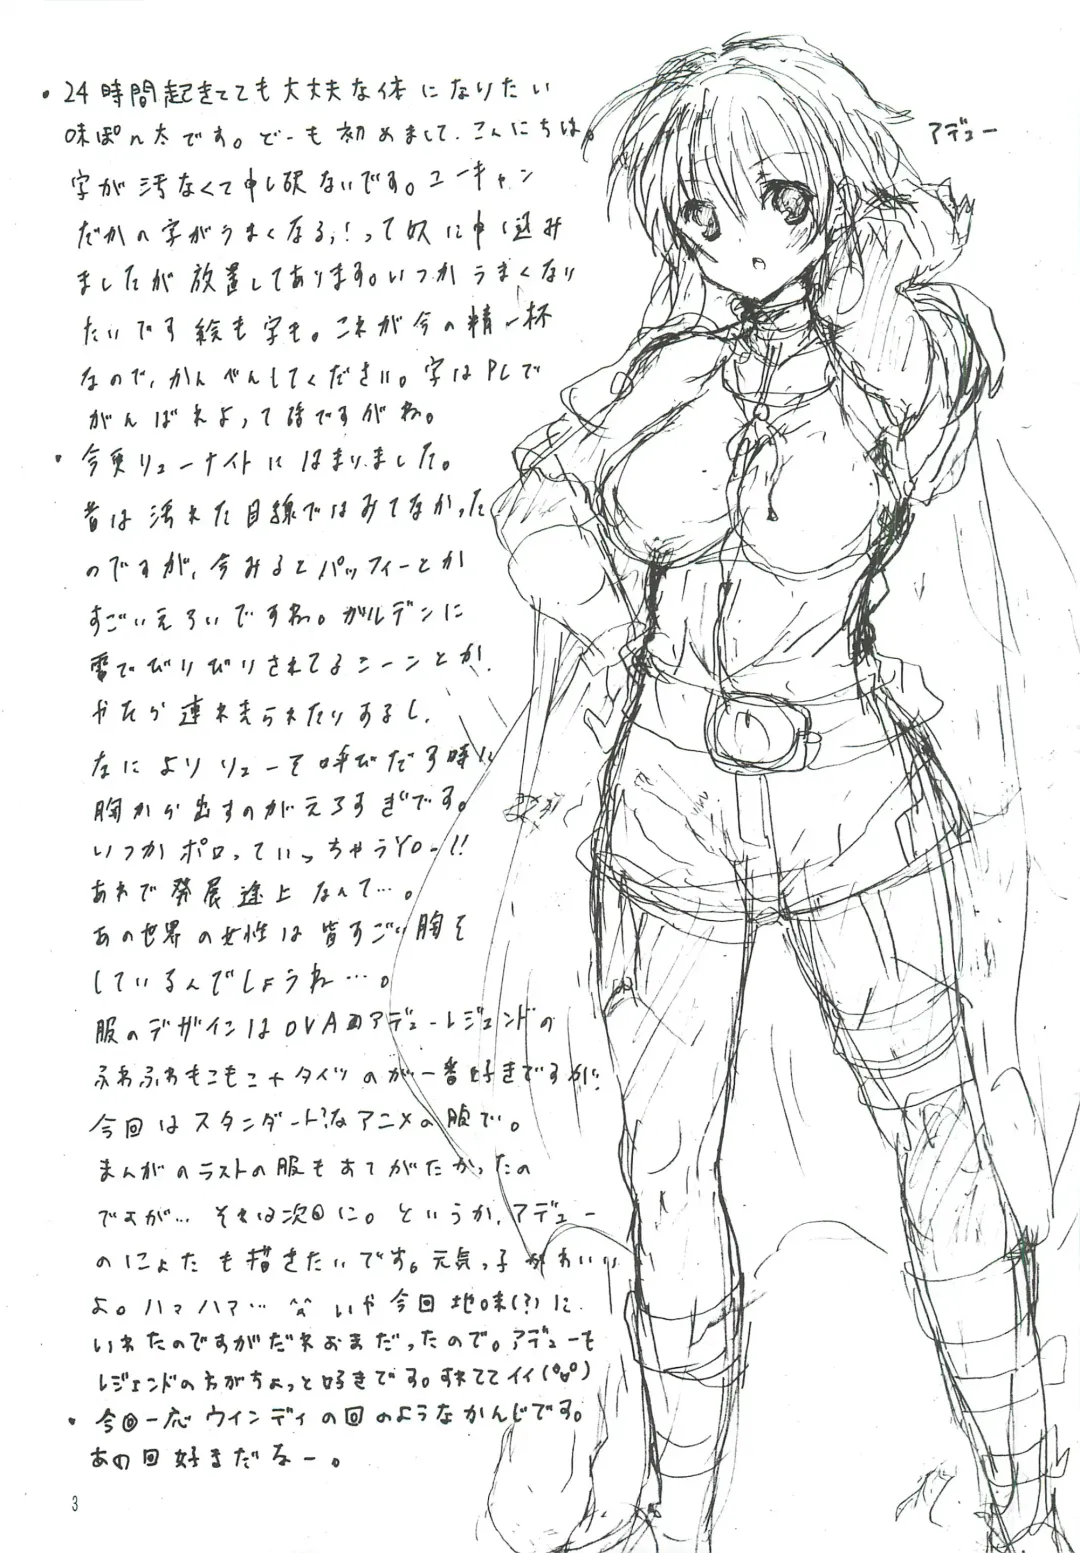 ・24時間起きてても大丈夫な体になりたい
味ぽん太です。どーも初めまして、こんにちは。
字が汚なくて申し訳ないです。ユーキャン
だかの字がうまくなる!って奴に申し込み
ましたが放置してあります。いつかうまくなり
たいです絵も字も。これが今の精一杯
なので、かんべんしてください。字はPCで
がんばれよって話ですがね。
・今更リューナイトにはまりました。
昔は汚れた目線ではみてなかった
のですが、今みるとパッフィーとか
すごいえろいですね。ガルデンに
雷でびりびりされてるシーンとか、
やたら連れ去られたりするし、
なによりリューを呼びだす時に
胸から出すのがえろすぎです。
いつかポロっていっちゃうYO-!!
あれで発展途上なんて…。
あの世界の女性は皆すごい胸を
しているんでしょうね…。
服のデザインはOVAのアデューレジェンドの
ふわふわもこもこ+タイツのが一番好きですが、
今回はスタンダート?なアニメの服で。
まんがのラストの服もすてがたかったの
ですが… それは次回に。というか、アデュー
のにょたも描きたいです。元気っ子かわいい
よ。ハァハァ… ^^ いや今回地味(?)に
いれたのですがだれおまだったので。アデューも
レジェンドの方がちょっと好きです。すれててイイ(゚∀゚)
・今回一応ウインディの回のようなかんじです。
あの回好きだなー。
3
アデュー